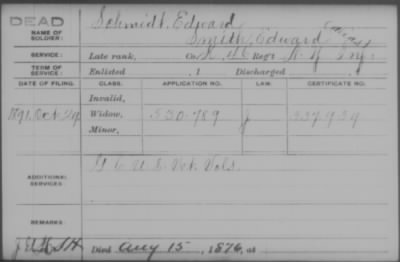 DEAD
NAME OF SOLDIER:
Schmidt, Edward
Smith, Edward alias
SERVICE:
Late rank, Co. Reg't N.Y. Inf.
TERM OF SERVICE:
Enlisted , 1 Discharged , 1
DATE OF FILING. CLASS. APPLICATION NO. LAW. CERTIFICATE NO.
Invalid,
1891, Oct. 29 Widow, 530.789 337.939
Minor,
ADDITIONAL SERVICES:
U.S. Vet. Vols.
REMARKS:
Died Aug 15, 1876, at